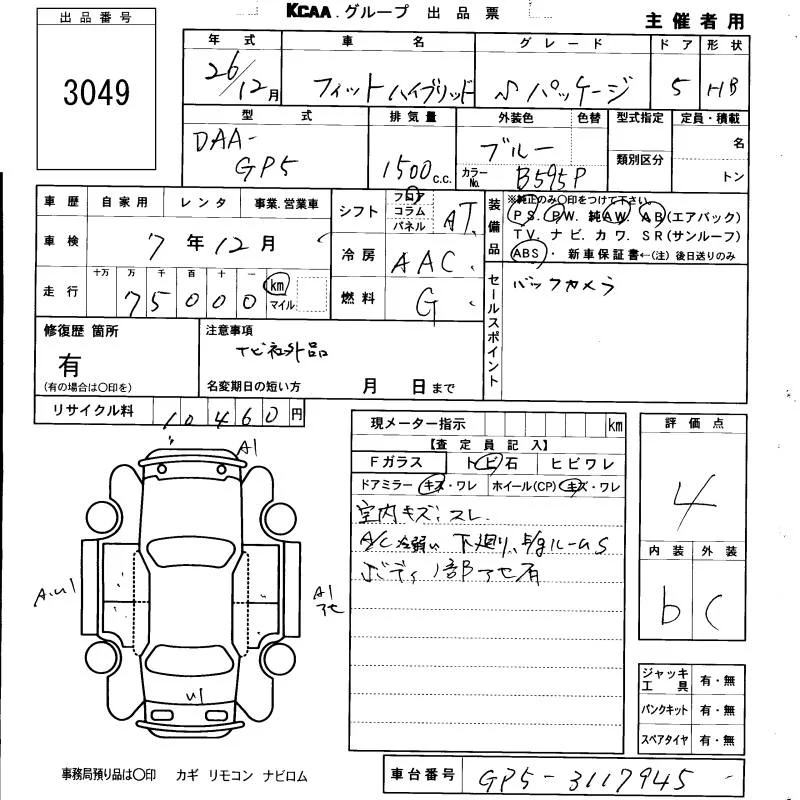 KCAA グループ 出品票
主催者用
出品番号
3049
年式 車名 グレード ドア 形状
26/12月 フィットハイブリッド Sパッケージ 5 HB
型式 排気量 外装色 色替 型式指定 定員・積載
DAA-GP5 1500c.c. ブルー 名
カラーNo. B595P 類別区分 トン
車歴 自家用 レンタ 事業.営業車
車検 7年12月
走行 十万 万 千 百 十 一
75000 km マイル
シフト フロア コラム パネル AT
冷房 AAC
燃料 G
装備品 ※純正のみ〇印をつけて下さい。
PS. PW. 純AW. AB(エアバック)
TV. ナビ. カワ. SR(サンルーフ)
ABS・新車保証書←(注)後日送りのみ
セールスポイント
バックカメラ
修復歴 箇所
有
(有の場合は〇印を)
注意事項
ナビ社外品
名変期日の短い方 月 日まで
リサイクル料 10460円
現メーター指示 km
【査定員記入】
Fガラス トビ石 ヒビワレ
ドアミラー キズ・ワレ ホイール(CP) キズ・ワレ
室内キズ、スレ
A/C 弱い 下廻り、E/gルームS
ボディ1部アセ有
評価点
4
内装 外装
b C
A1
A.U1
A1
アセ
U1
ジャッキ工具 有・無
パンクキット 有・無
スペアタイヤ 有・無
事務局預り品は〇印 カギ リモコン ナビロム
車台番号 GP5-3117945